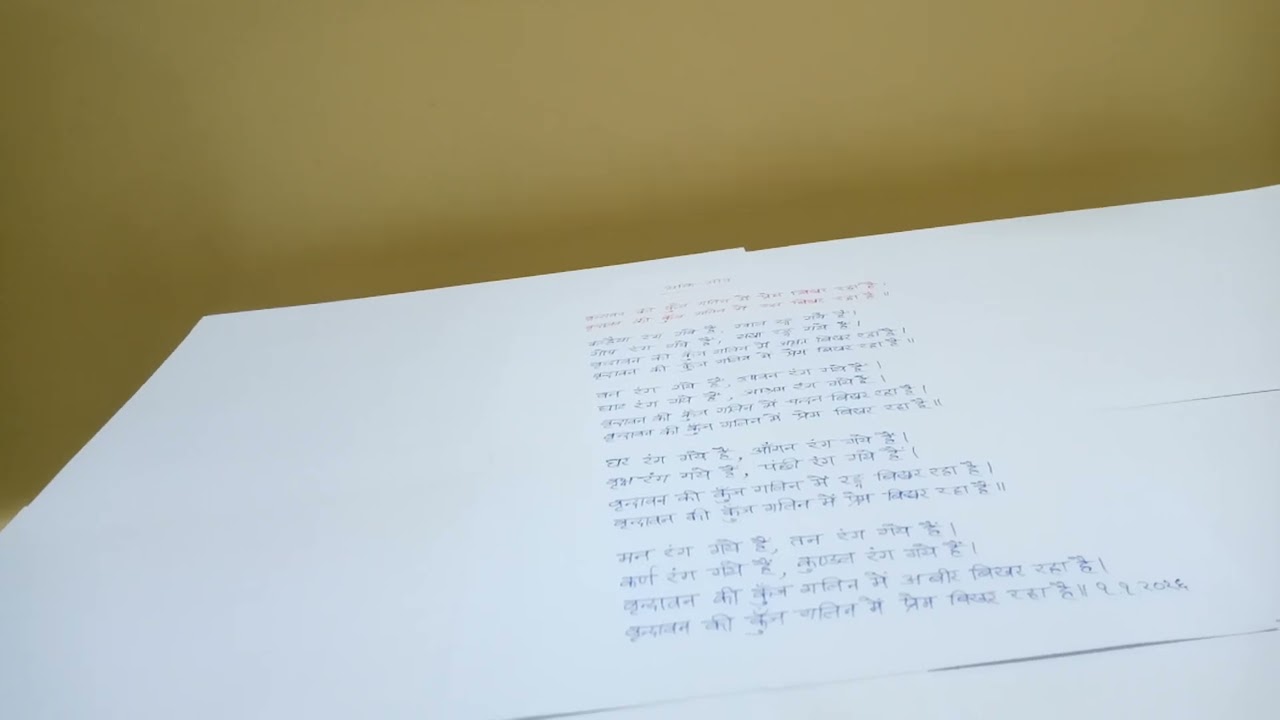 भक्ति-गीत
वृन्दावन की कुँज गलिन में प्रेम बिखर रहा है।
वृन्दावन की कुँज गलिन में रङ्ग बिखर रहा है॥
कन्हैया रंग गये हैं, ग्वाल रङ्ग गये हैं।
गोप रंग गये हैं, सखा रङ्ग गये हैं।
वृन्दावन की कुँज गलिन में बिखर रहा है।
वृन्दावन की कुँज गलिन में प्रेम बिखर रहा है॥
वन रंग गये हैं, उपवन रंग गये हैं।
घाट रंग गये हैं, आश्रम रंग गये हैं।
वृन्दावन की कुँज गलिन में चन्दन बिखर रहा है।
वृन्दावन की कुँज गलिन में प्रेम बिखर रहा है॥
घर रंग गये हैं, आँगन रंग गये हैं।
वृक्ष रंग गये हैं, पंछी रंग गये हैं।
वृन्दावन की कुँज गलिन में रङ्ग बिखर रहा है।
वृन्दावन की कुँज गलिन में प्रेम बिखर रहा है॥
मन रंग गये हैं, तन रंग गये हैं।
कर्ण रंग गये हैं, कुण्डल रंग गये हैं।
वृन्दावन की कुँज गलिन में अबीर बिखर रहा है।
वृन्दावन की कुँज गलिन में प्रेम बिखर रहा है॥ १ १ २०२६